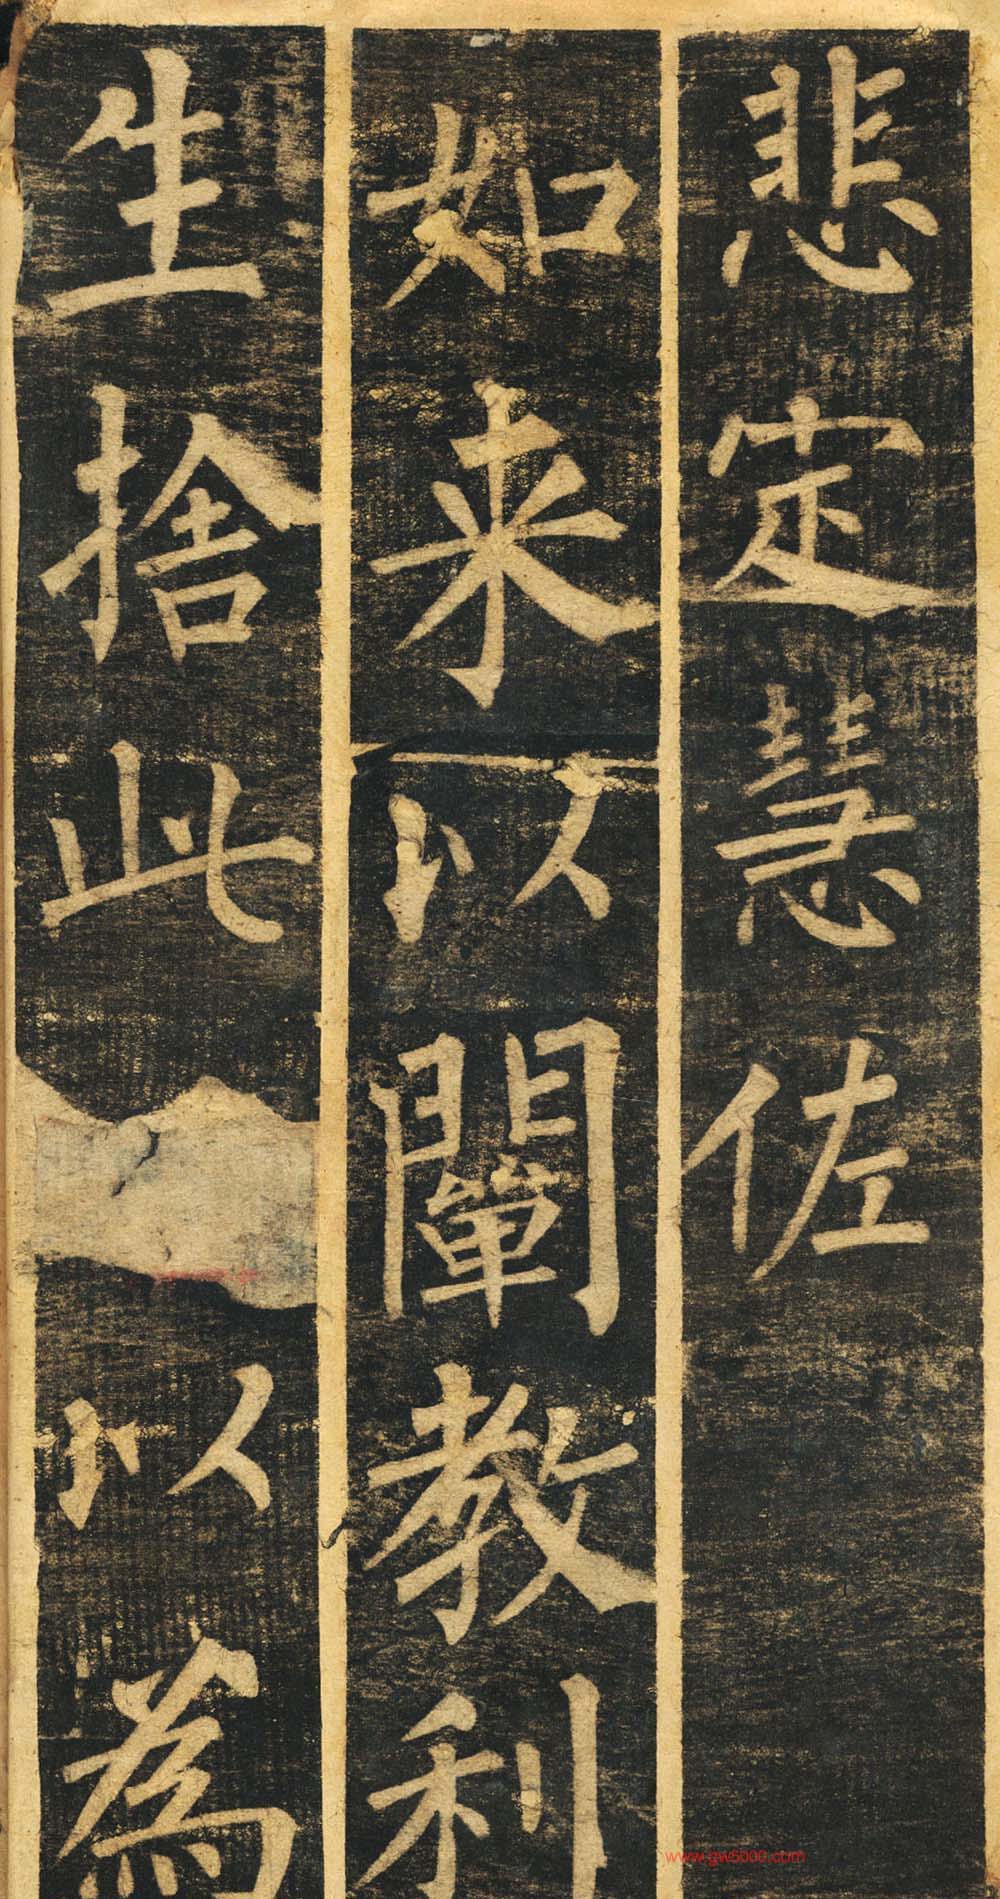 悲定慧佐
如来以闡教利
生捨此以為
www.gw5000.com